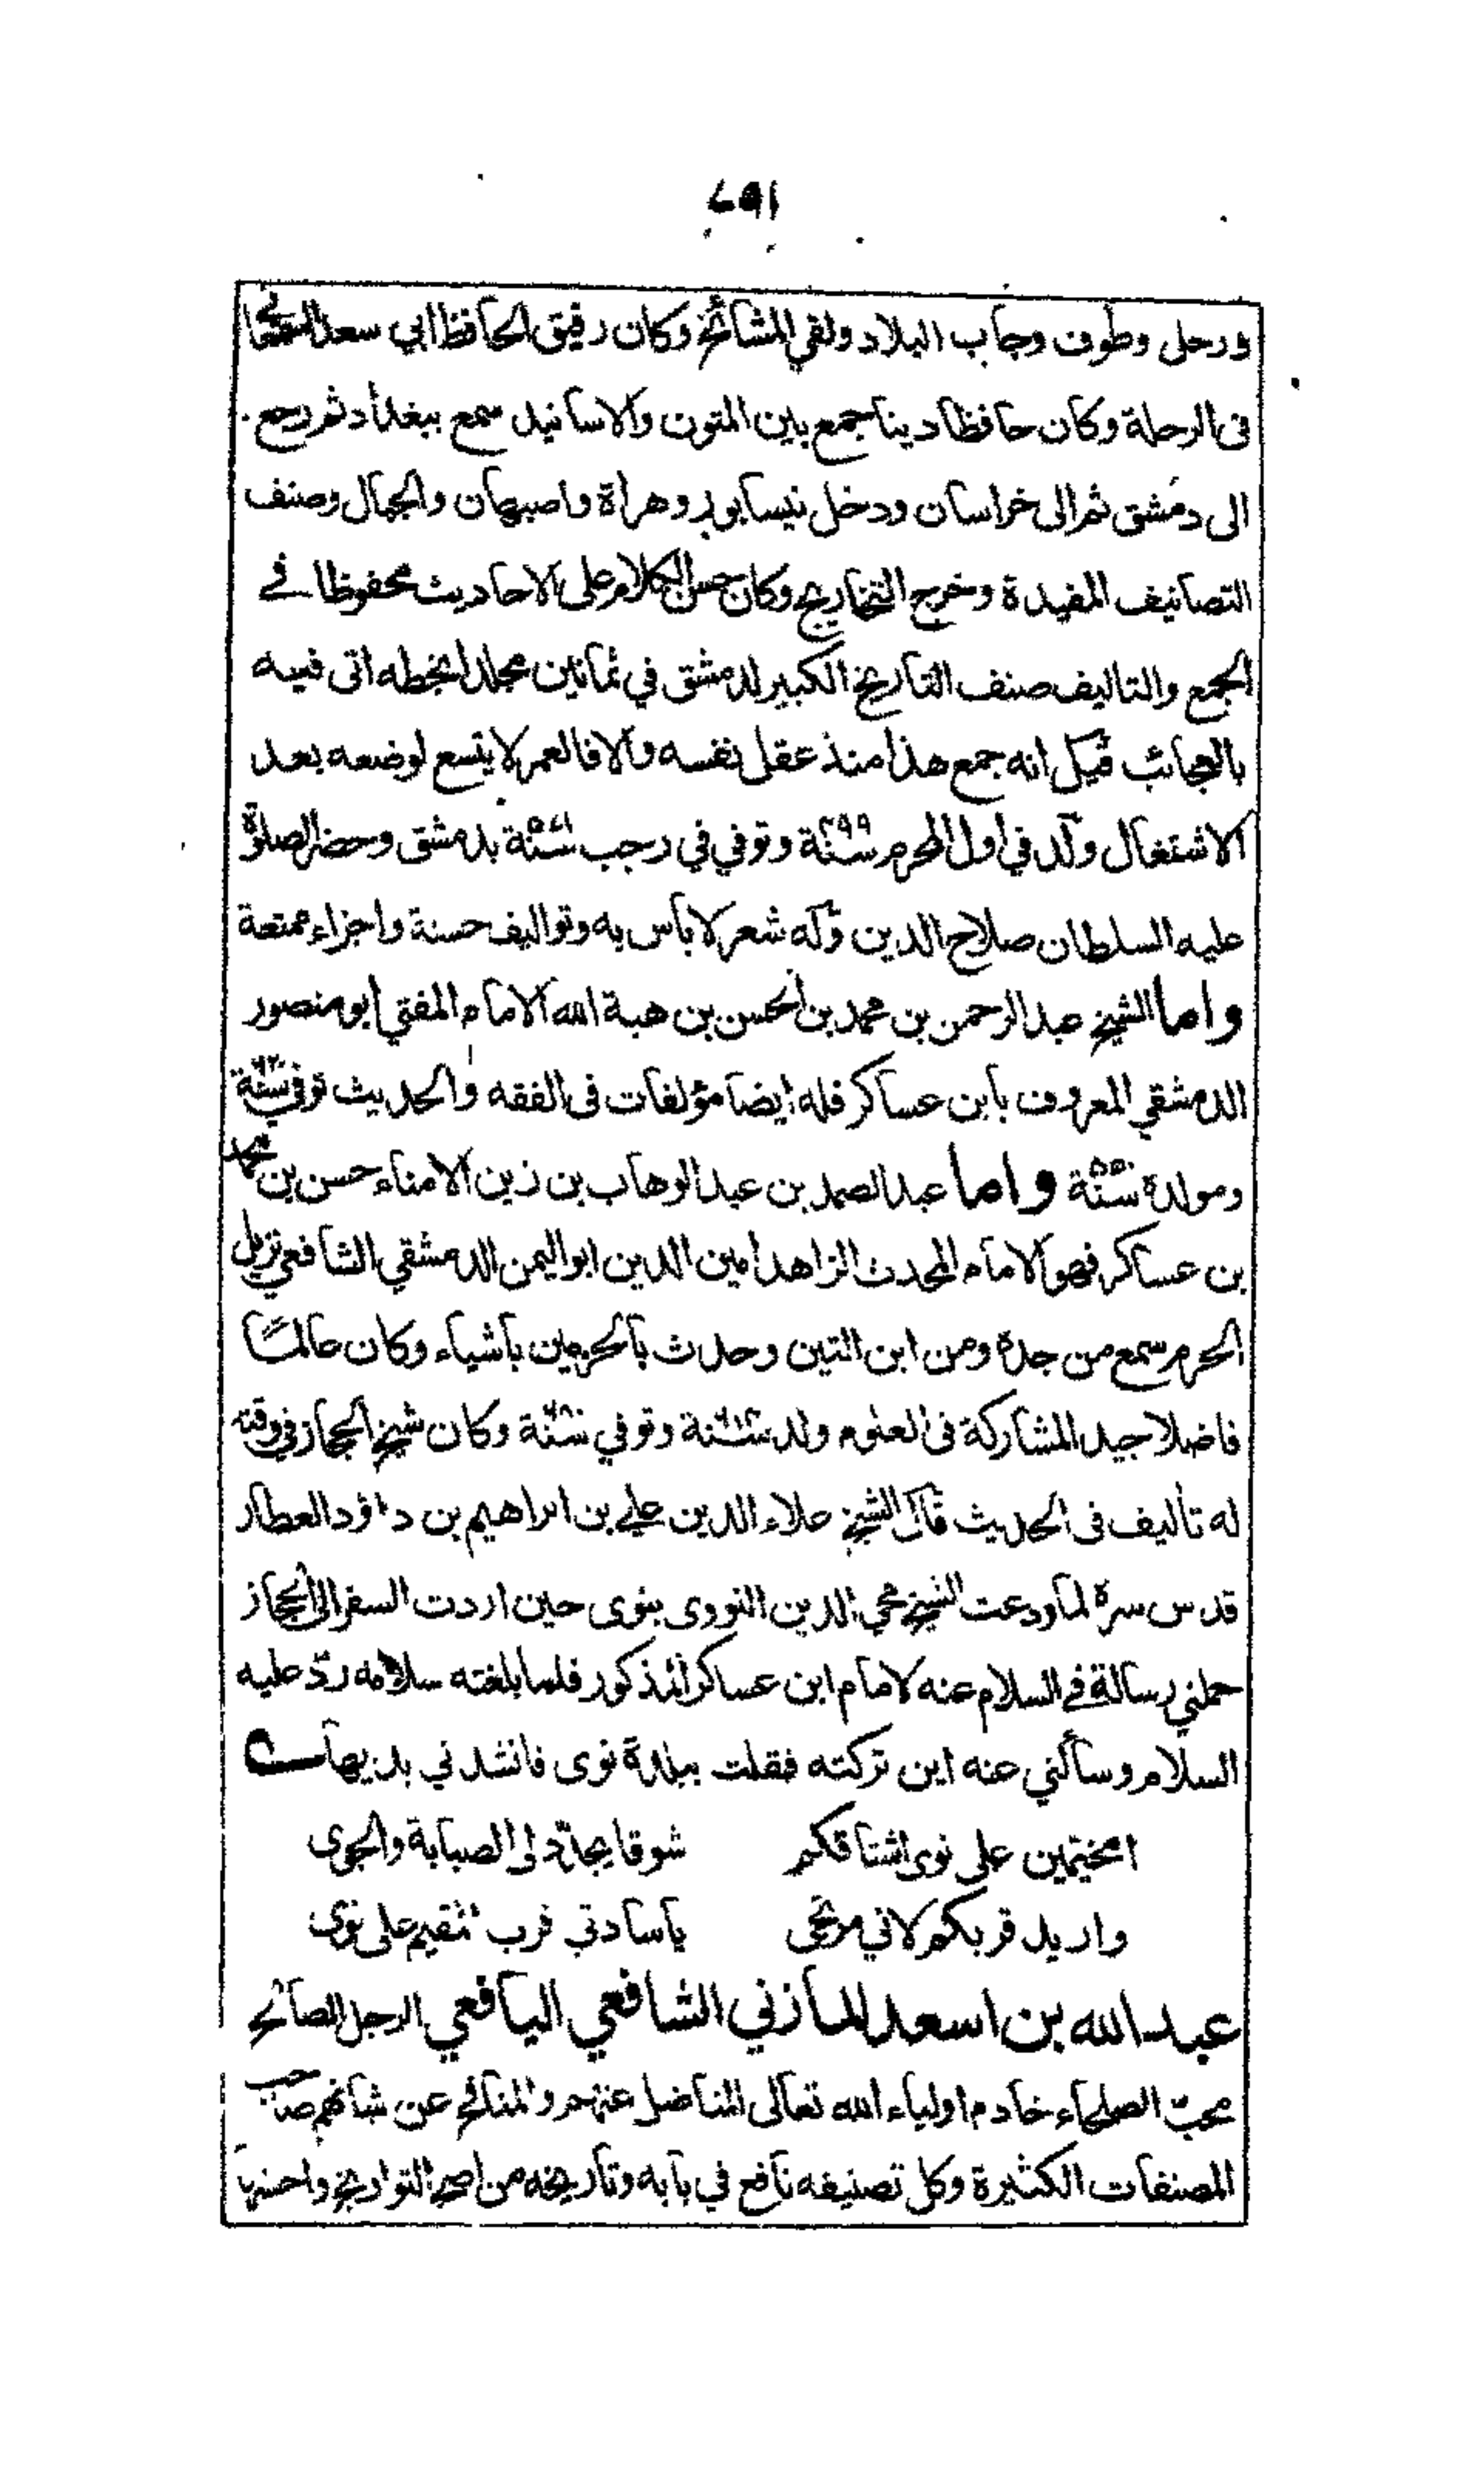 ١٥٦
ورحل وطوف وجاب البلاد ولقي المشائخ وكان رفيق الحافظ ابي سعد السمعاني
فى الرحلة وكان حافظا دينا جمع بين المتون والاسانيد سمع ببغداد ثم رجع
الى دمشق ثم الى خراسان ودخل نيسابور وهراة واصبهان والجبال وصنف
التصانيف المفيدة وخرج التخاريج وكان حسن الكلام على الاحاديث محفوظا في
الجمع والتاليف صنف التاريخ الكبير لدمشق في ثمانين مجلدا بخطه اتى فيه
بالعجائب قيل انه جمع هذا منذ عقل نفسه والا فالعمر لا يتسع لوضعه بعد
الاشتغال ولد في اول المحرم سنة ٤٩٩ وتوفي في رجب سنة ٥٧١ بدمشق وحضر الصلوة
عليه السلطان صلاح الدين وله شعر لا بأس به وتواليف حسنة واجزاء ممتعة
واما الشيخ عبد الرحمن بن محمد بن الحسن بن هبة الله الامام المفتي ابو منصور
الدمشقي المعروف بابن عساكر فله ايضا مؤلفات فى الفقه والحديث توفي سنة
ومولده سنة ٥٥٠ واما عبد الصمد بن عبد الوهاب بن زين الامناء حسن بن محمد
بن عساكر فهو الامام المحدث الزاهد امين الدين ابو اليمن الدمشقي الشافعي نزيل
الحرم سمع من جده ومن ابن التين وحدث بالحرمين باشياء وكان عالمًا
فاضلا جيد المشاركة فى العلوم ولد سنة وتوفي سنة وكان شيخ الحجاز في وقته
له تأليف فى الحديث قال الشيخ علاء الدين علي بن ابراهيم بن داؤد العطار
قدس سره لما ودعت الشيخ محي الدين النووى بنوى حين اردت السفر الى الحجاز
حملني رسالة في السلام عنه لامام ابن عساكر المذكور فلما بلغته سلامه ردّ عليه
السلام وسألني عنه اين تركته فقلت ببلدة نوى فانشدني بديها
امخيمين على نوى اشتاقكم شوقا يجدّد لى الصبابة والجوى
واريد قربكم لاني مرتجى يا سادتي قرب المقيم على نوى
عبد الله بن اسعد المازني الشافعي اليافعي الرجل الصالح
محبّ الصلحاء خادم اولياء الله تعالى المناضل عنهم والمنافح عن شانهم صاحب
المصنفات الكثيرة وكل تصنيفه نافع في بابه وتاريخه من اصح التواريخ واحسنها